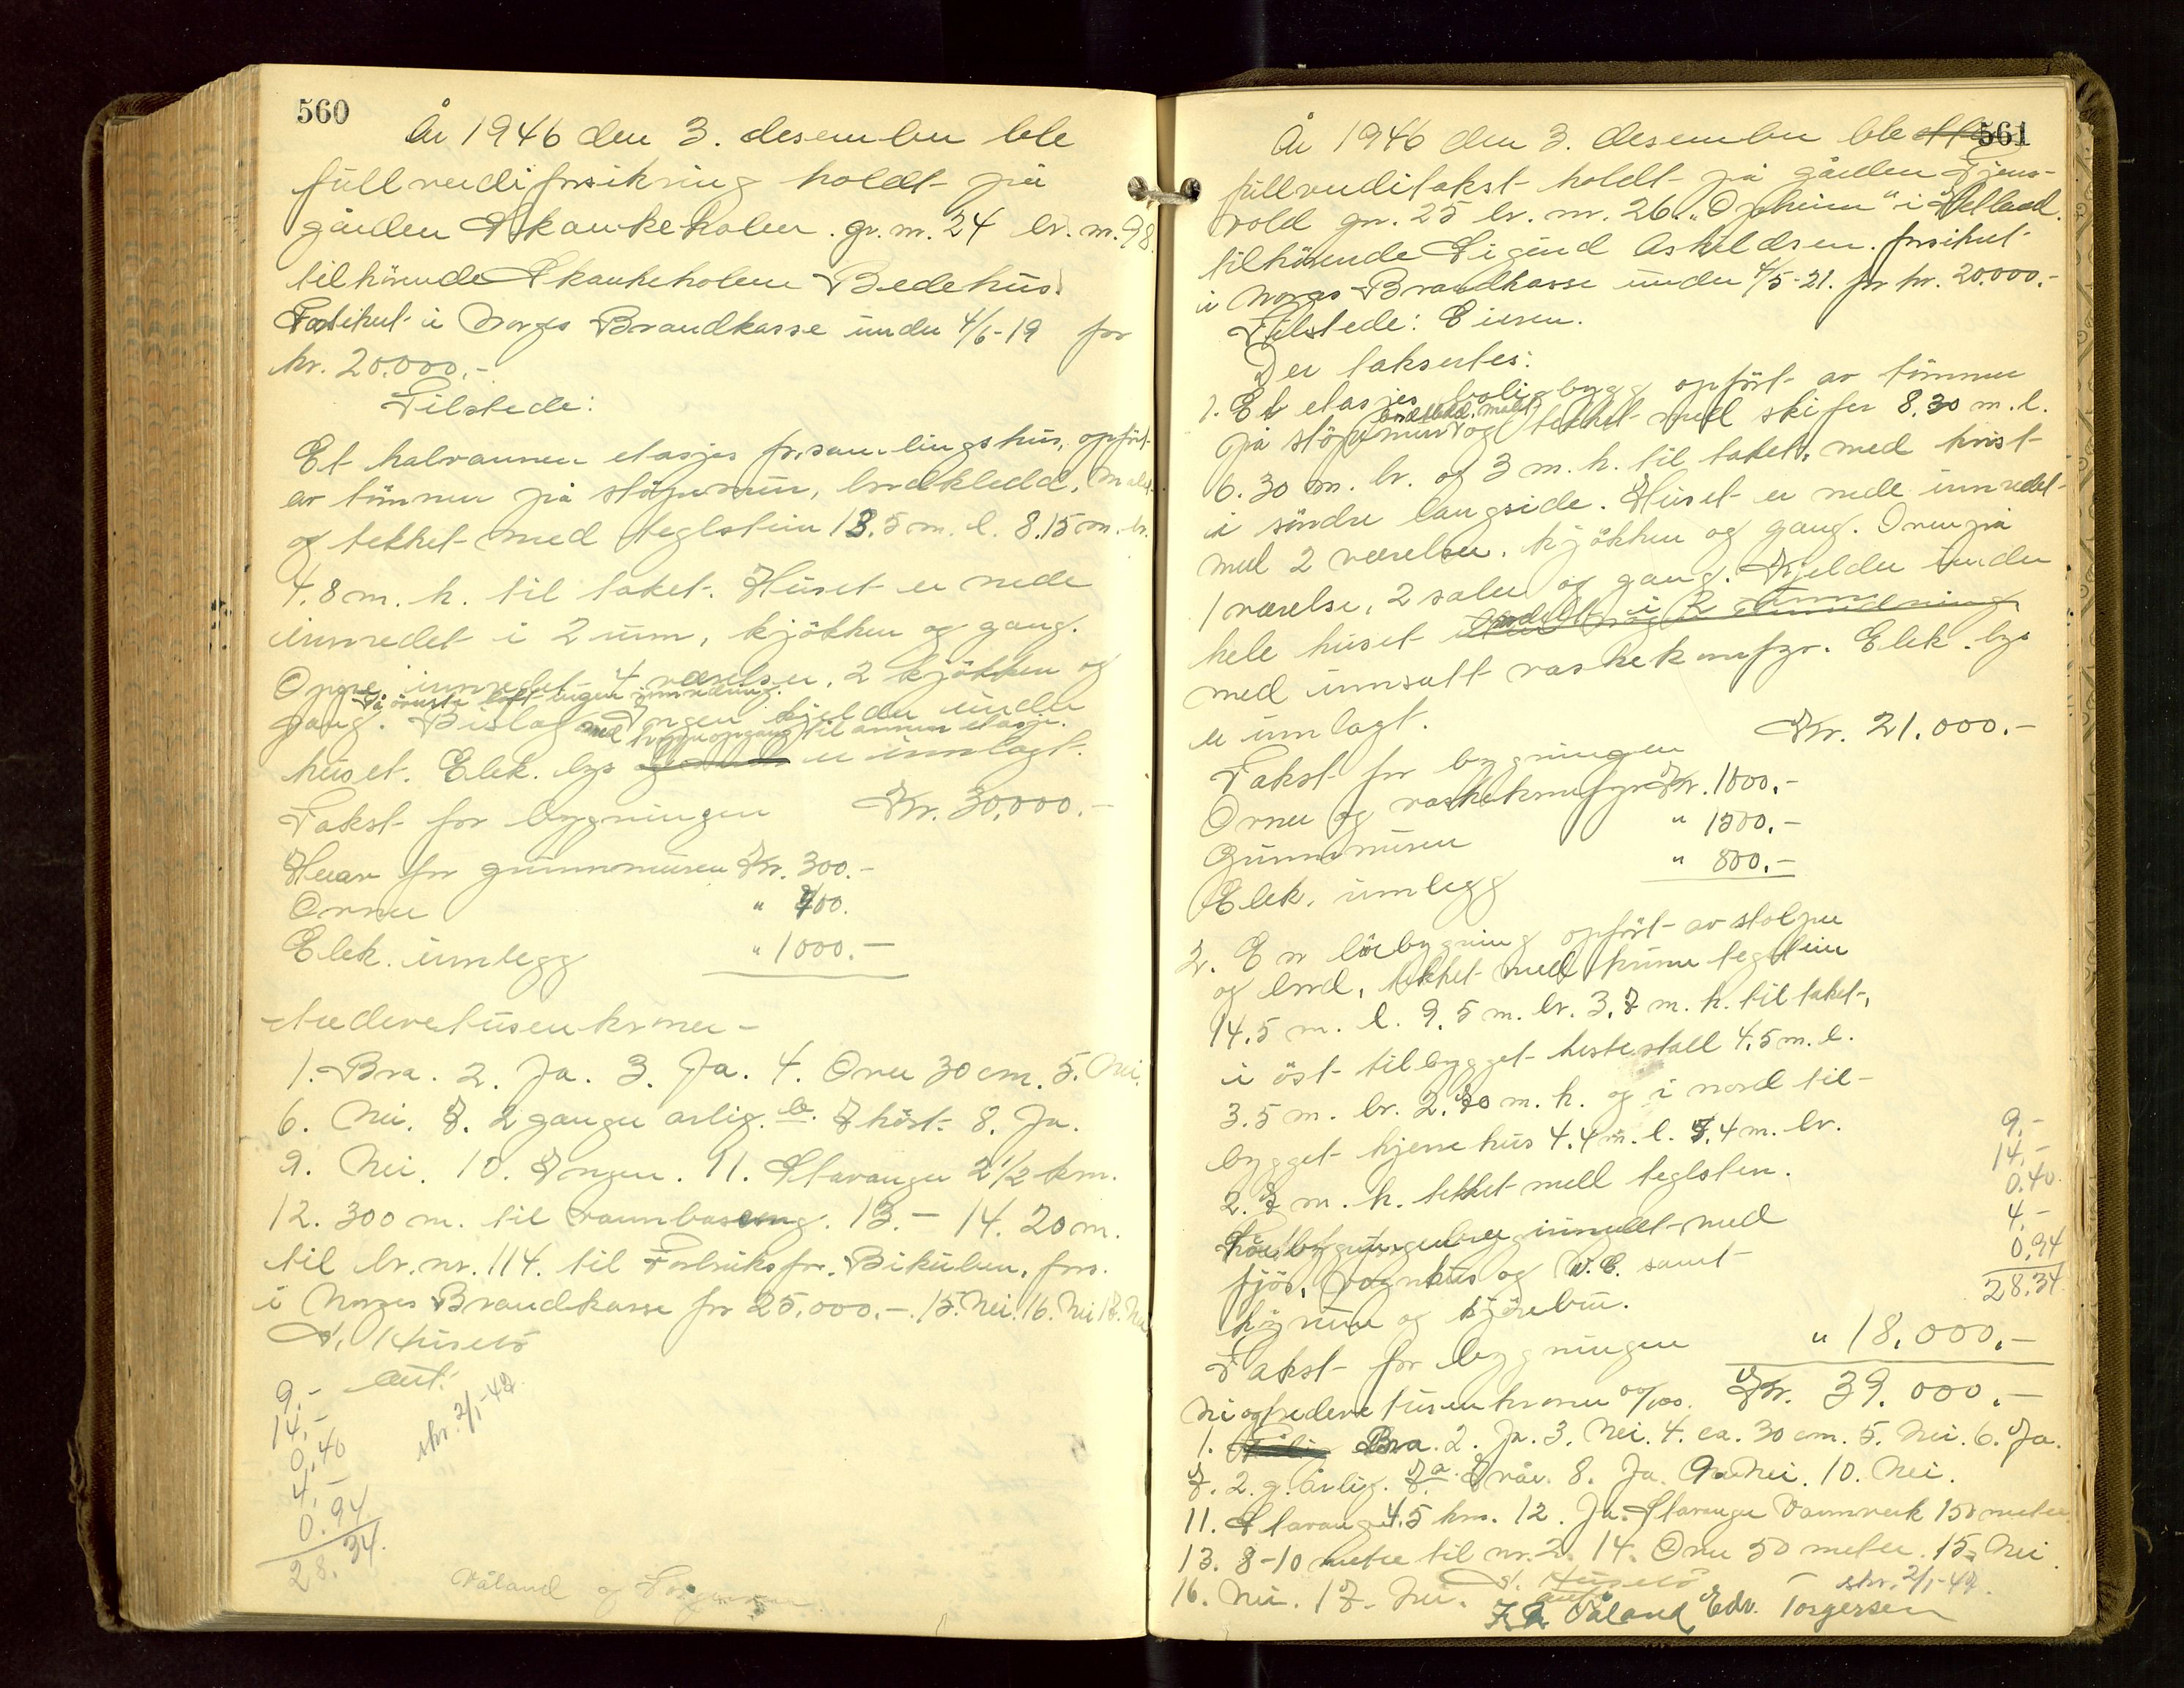 560
År 1946 den 3. desember ble
fullverdiforsikring holdt på
gården Skankeholen. gr. nr. 24 br. nr. 98.
tilhörende Skankeholen Bedehus.
Forsikret i Norges Brandkasse under 4/6-19 for
kr. 20.000.-
Tilstede:
Et halvannen etasjes forsamlingshus, opfört
av tömmer på stöpemur, bordkledd, malt
og tekket med teglstein 13.5 m. l. 8.15 m. br.
4.8 m. h. til taket. Huset er nede
innredet i 2 rum, kjökken og gang.
Oppe innredet 4 værelser, 2 kjökken og
På överste loft ingen innredning.
gang. Bislag Ingen kjelder under
med trappeopgang til annen etasje.
huset. Elek. lys er innlagt.
Takst for bygningen Kr. 30,000.-
Herav for grunnmuren Kr. 300.-
Ovner " 400.
Elek. innlegg " 1000.-
-tredevetusenkroner-
1. Bra. 2. Ja. 3. Ja. 4. Over 30 cm. 5. Nei.
6. Nei. 7. 2 ganger årlig. b. 7 höst. 8. Ja.
9. Nei. 10. Ingen. 11. Stavanger 2 1/2 km.
12. 300 m. til vannbasseng. 13. - 14. 20 m.
til br. nr. 114. til Forbruksfor. Bikuben, fors.
i Norges Brandkasse for 25,000.-. 15. Nei. 16. Nei 17. Nei
A. Husebö
ant.
skr. 2/1-47
9.-
14.-
0.40
4.-
0.94
28.34.
Våland og Torgersen
561
År 1946 den 3. desember ble
fullverditakst holdt på gården Tjens-
vold gr. 25 br. nr. 26. "Opheim" i Hetland.
tilhörende Sigurd Askildsen. forsikret
i Norges Brandkasse under 4/5-21. for kr. 20.000.-
Tilstede: Eieren.
Der taksertes:
1. Et etasjes boligbygg opfört av tömmer
bordkledd. malt
på stöpemur og tekket med skifer 8.30 m. l.
6.30 m. br. og 3 m. h. til taket, med kvist
i söndre langside. Huset er nede innredet
med 2 værelser, kjökken og gang. Ovenpå
1 værelse, 2 saler og gang. Kjelder under
hele huset
med innsatt vaskekomfyr. Elek. lys
er innlagt.
Takst for bygningen Kr. 21.000.-
Ovner og vaskekomfyr Kr. 1000.-
Grunnmuren " 1500.-
Elek. innlegg " 800.-
2. En löebygning opfört av stolper
og bord, tekket med krum teglstein
14.5 m. l. 9.5 m. br. 3.7 m. h. til taket,
i öst tilbygget hestestall 4.5 m. l.
3.5 m. br. 2.70 m. h. og i nord til-
bygget kjerrehus 4.4 m. l. 3.4 m. br.
2.7 m. h. tekket med teglsten.
Löebygningen er innredet med
fjös, vognhus og W.C. samt
höyrum og kjörebru.
Takst for bygningen " 18.000.-
Kr. 39.000.-
9.-
14.-
0.40
4.-
0.94
28.34
Niogtredevetusenkroner 00/100.
1. Bra. 2. Ja. 3. Nei. 4. ca. 30 cm. 5. Nei. 6. Ja.
7. 2. g. årlig. 7. a. 7 vår. 8. Ja. 9. Nei. 10. Nei.
11. Stavanger 4.5 km. 12. Ja. Stavanger Vannverk 150 meter
13. 8-10 meter til nr. 2. 14. Over 50 meter. 15. Nei.
16. Nei. 17. Nei. A. Husebö
ant. skr. 2/1-47.
Våland Edv. Torgersen